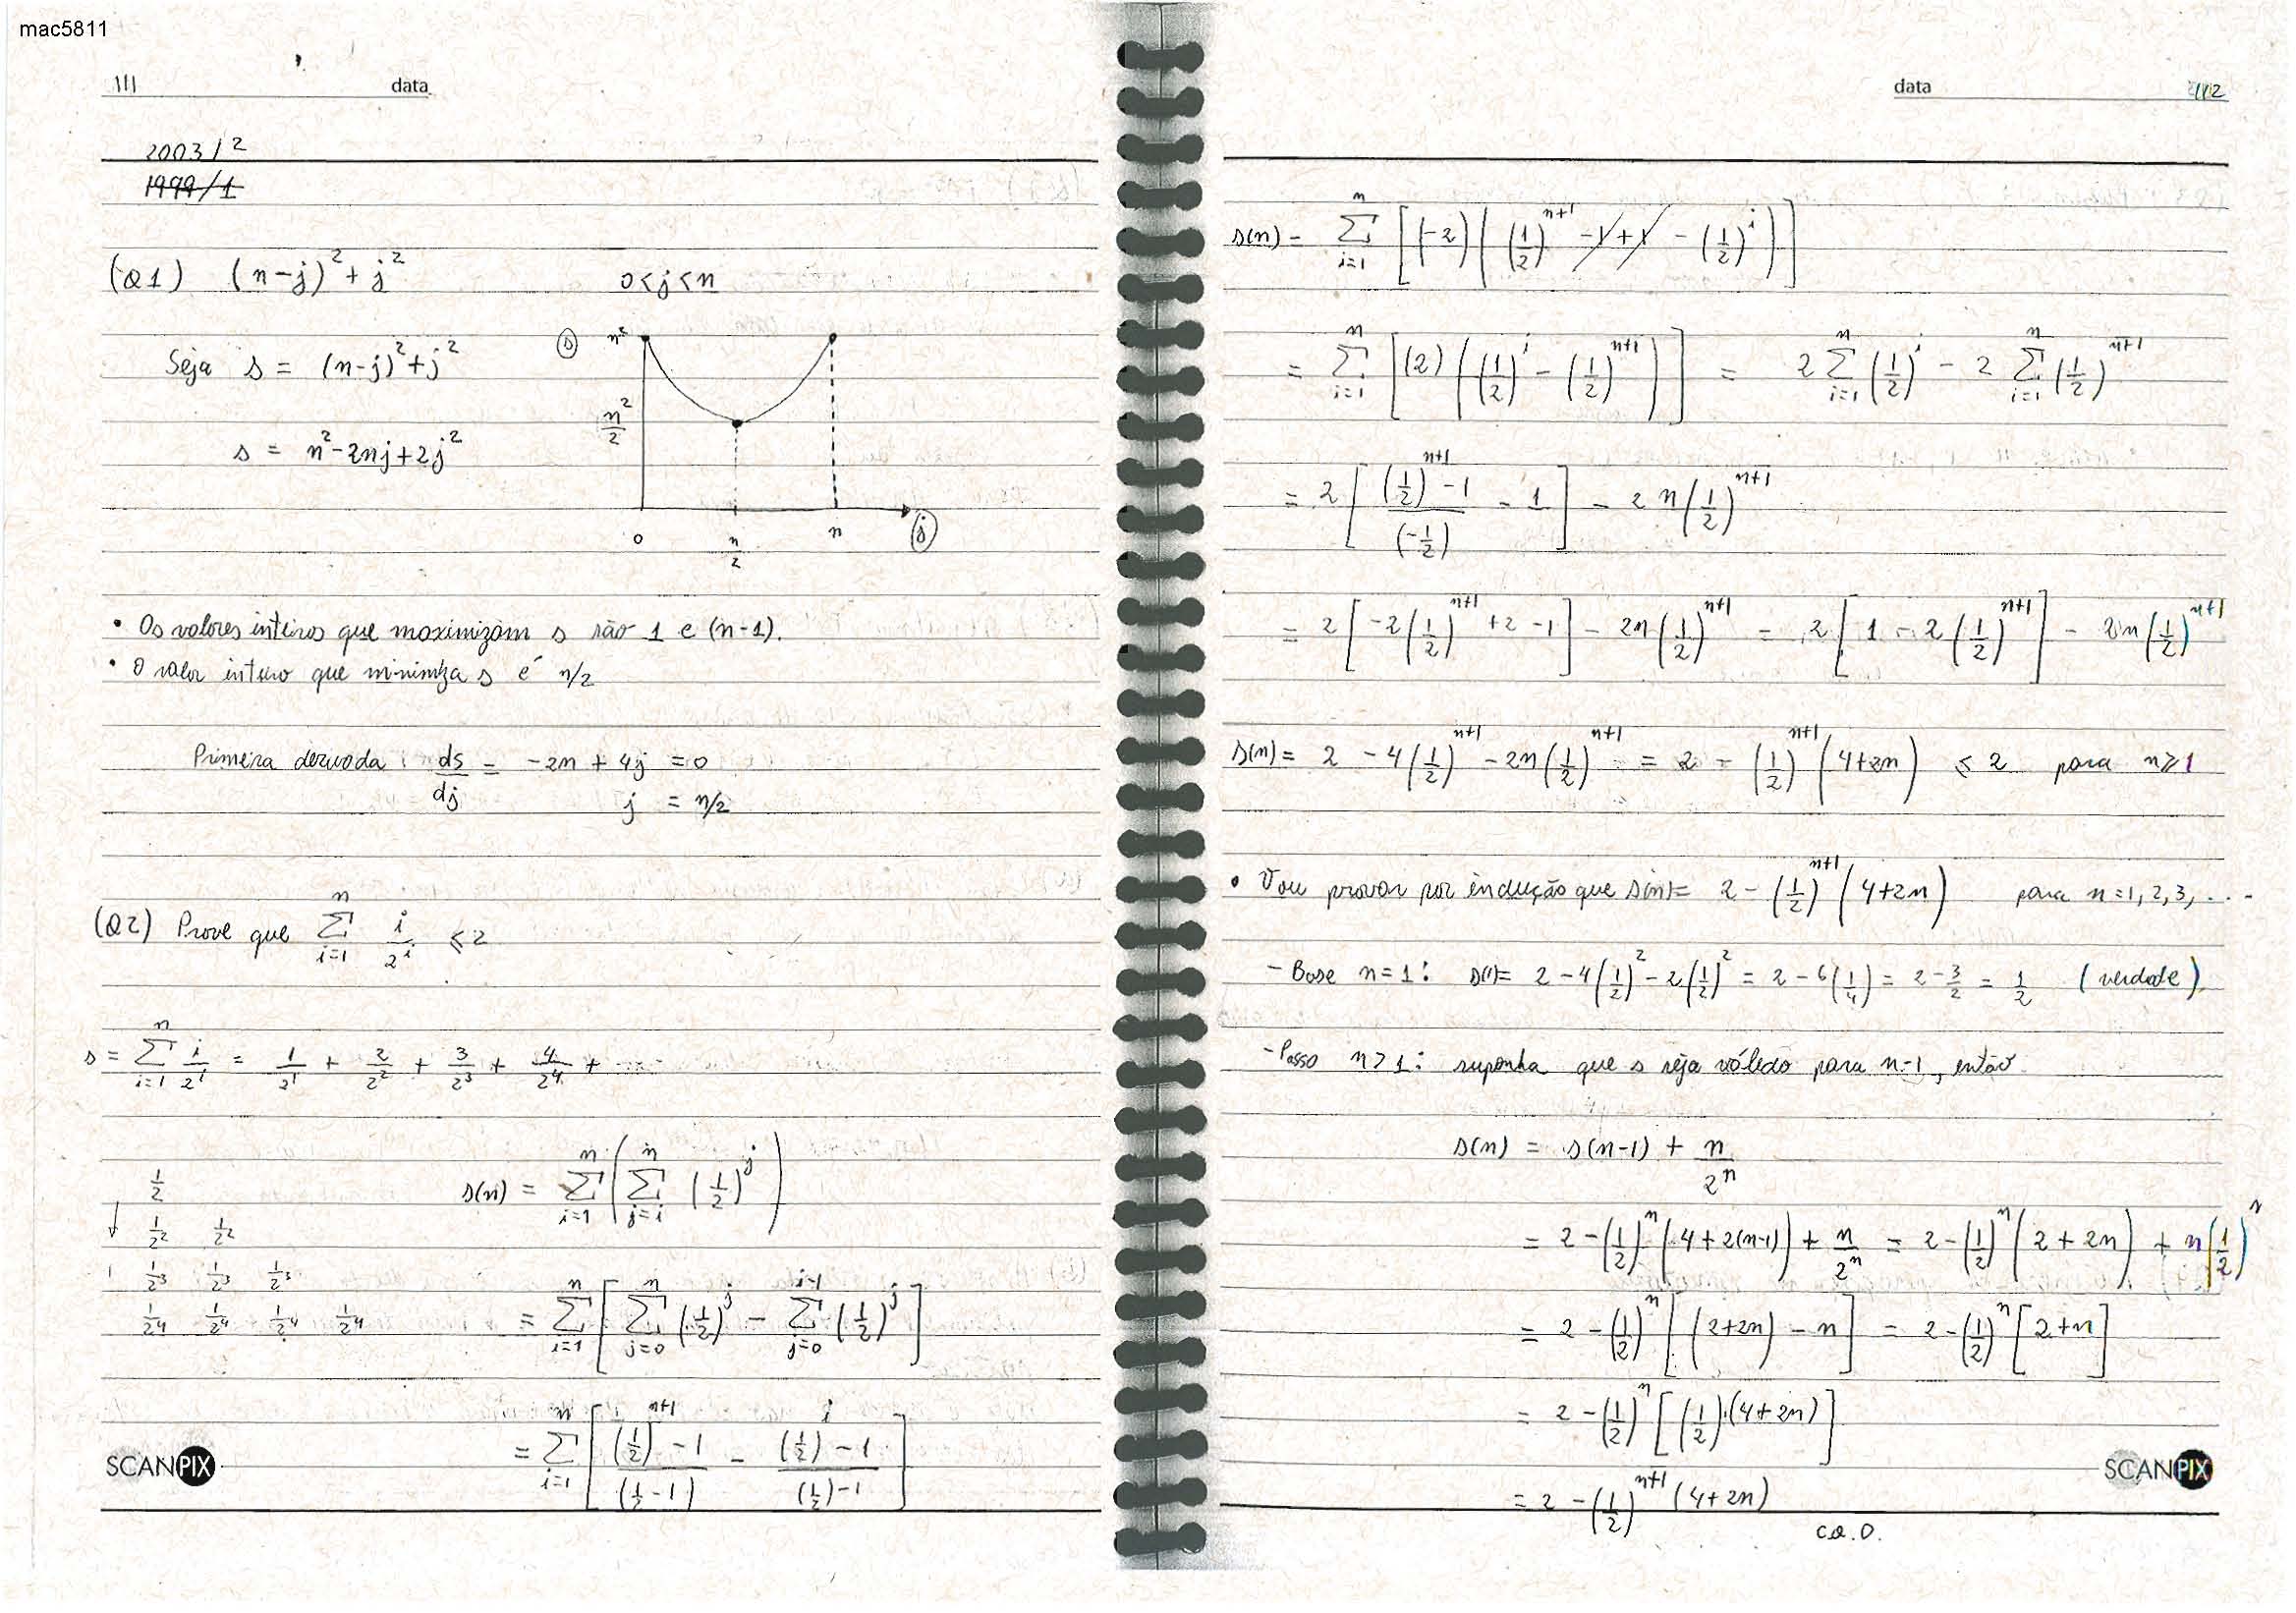 mac5811
111 data
2003/2
1999/1
(Q1) (n-j)² + j² 0<j<n
Seja s = (n-j)² + j²
s = n² - 2nj + 2j²
s n²
n²/2
0 n/2 n j
• Os valores inteiros que maximizam s são 1 e (n-1).
• O valor inteiro que minimiza s é n/2
Primeira derivada: ds/dj = -2n + 4j = 0
j = n/2
(Q2) Prove que Σ_{i=1}^{n} i/2^i ≤ 2
s = Σ_{i=1}^{n} i/2^i = 1/2^1 + 2/2^2 + 3/2^3 + 4/2^4 + ...
1/2
1/2^2 1/2^2
1/2^3 1/2^3 1/2^3
1/2^4 1/2^4 1/2^4 1/2^4
s(n) = Σ_{i=1}^{n} ( Σ_{j=i}^{n} (1/2)^j )
= Σ_{i=1}^{n} [ Σ_{j=0}^{n} (1/2)^j - Σ_{j=0}^{i-1} (1/2)^j ]
= Σ_{i=1}^{n} [ ((1/2)^{n+1} - 1)/(1/2 - 1) - ((1/2)^i - 1)/((1/2) - 1) ]
SCANPIX
data 112
s(n) = Σ_{i=1}^{n} [ (-2) ( (1/2)^{n+1} - 1 + 1 - (1/2)^i ) ]
= Σ_{i=1}^{n} [ (2) ( (1/2)^i - (1/2)^{n+1} ) ] = 2 Σ_{i=1}^{n} (1/2)^i - 2 Σ_{i=1}^{n} (1/2)^{n+1}
= 2 [ ((1/2)^{n+1} - 1)/(-1/2) - 1 ] - 2n (1/2)^{n+1}
= 2 [ -2 (1/2)^{n+1} + 2 - 1 ] - 2n (1/2)^{n+1} = 2 [ 1 - 2 (1/2)^{n+1} ] - 2n (1/2)^{n+1}
s(n) = 2 - 4 (1/2)^{n+1} - 2n (1/2)^{n+1} = 2 - (1/2)^{n+1} (4+2n) ≤ 2 para n≥1
• Vou provar por indução que s(n) = 2 - (1/2)^{n+1} (4+2n) para n=1,2,3,...
- Base n=1: s(1) = 2 - 4 (1/2)² - 2 (1/2)² = 2 - 6 (1/4) = 2 - 3/2 = 1/2 (verdade)
- Passo n>1: suponha que s seja válido para n-1, então
s(n) = s(n-1) + n/2^n
= 2 - (1/2)^n (4 + 2(n-1)) + n/2^n = 2 - (1/2)^n (2+2n) + n (1/2)^n
= 2 - (1/2)^n [ (2+2n) - n ] = 2 - (1/2)^n [2+n]
= 2 - (1/2)^n [ (1/2)·(4+2n) ]
= 2 - (1/2)^{n+1} (4+2n)
C.Q.D.
SCANPIX